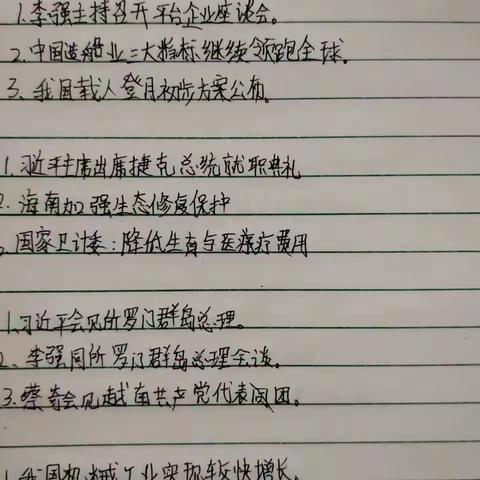 1.李强主持召开平台企业座谈会。
2.中国造船业三大指标继续领跑全球。
3、我国载人登月初步方案公布。
1.习近平主席出席捷克总统就职典礼
2.海南加强生态修复保护
3.国家卫计委:降低生育与医疗费用
1.习近平会见所罗门群岛总理。
2、李强同所罗门群岛总理会谈。
3.蔡奇会见越南共产党代表团。
1.我国机械工业实现较快增长。